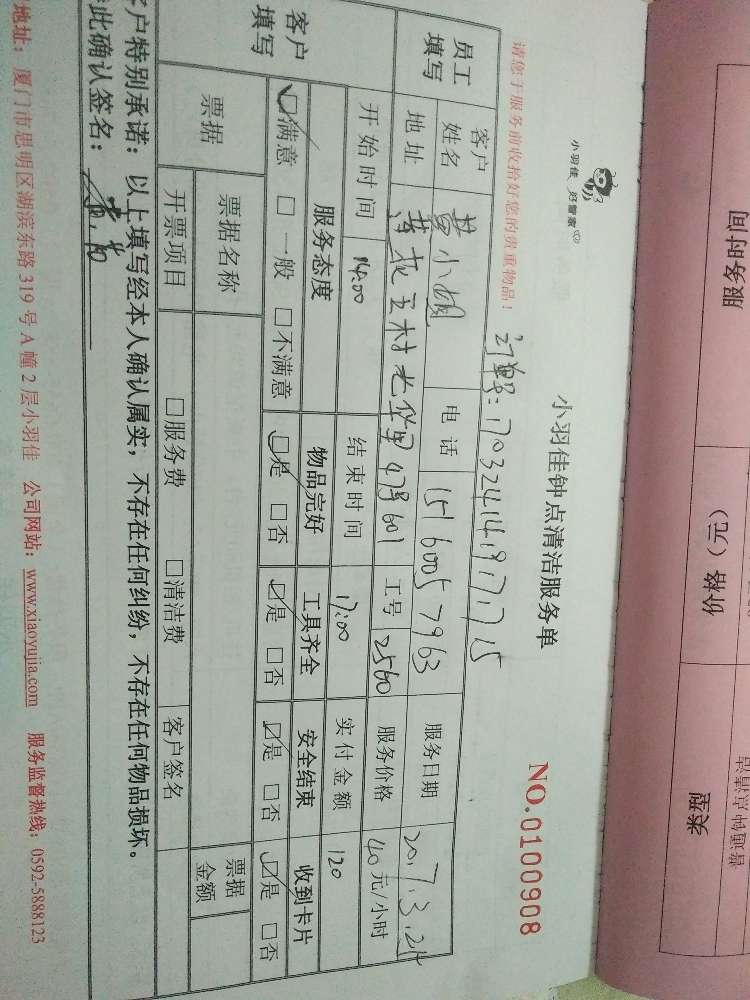 小羽佳 好管家
小羽佳钟点清洁服务单
NO.0100908
请您于服务前收拾好您的贵重物品！
订单号: 170324141917715
员工填写 客户姓名 黄小姐 电话 15160057963 服务日期 2017.3.24
地址 工号 2560 服务价格 40元/小时
开始时间 14:00 结束时间 17:00 实付金额 120
客户填写 服务态度 物品完好 工具齐全 安全结束 收到卡片
☑满意 □一般 □不满意 ☑是 □否 ☑是 □否 ☑是 □否 ☑是 □否
票据 票据名称 □服务费 □清洁费 客户签名 票据金额
开票项目
客户特别承诺：以上填写经本人确认属实，不存在任何纠纷，不存在任何物品损坏。
此确认签名：
地址：厦门市思明区湖滨东路319号A幢2层小羽佳 公司网站：www.xiaoyujia.com 服务监督热线：0592-5888123
服务时间 价格（元） 类型
普通钟点清洁